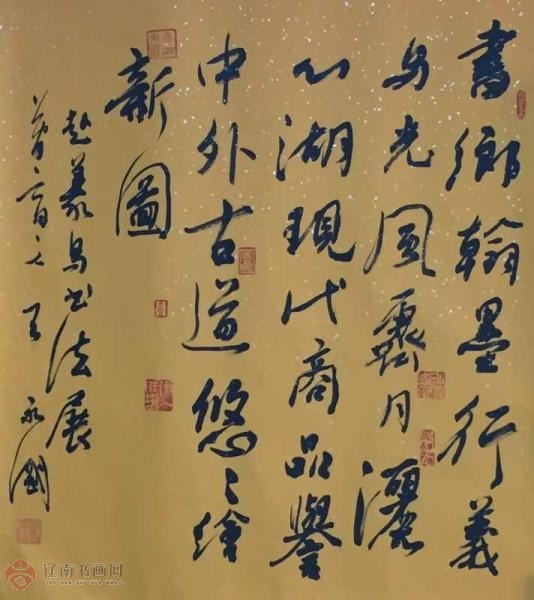 書鄉翰墨行義
烏光風霽月灑
心湖現代商品譽
中外古道悠〻繪
新圖
赴義烏書法展
永國
辽南书画网